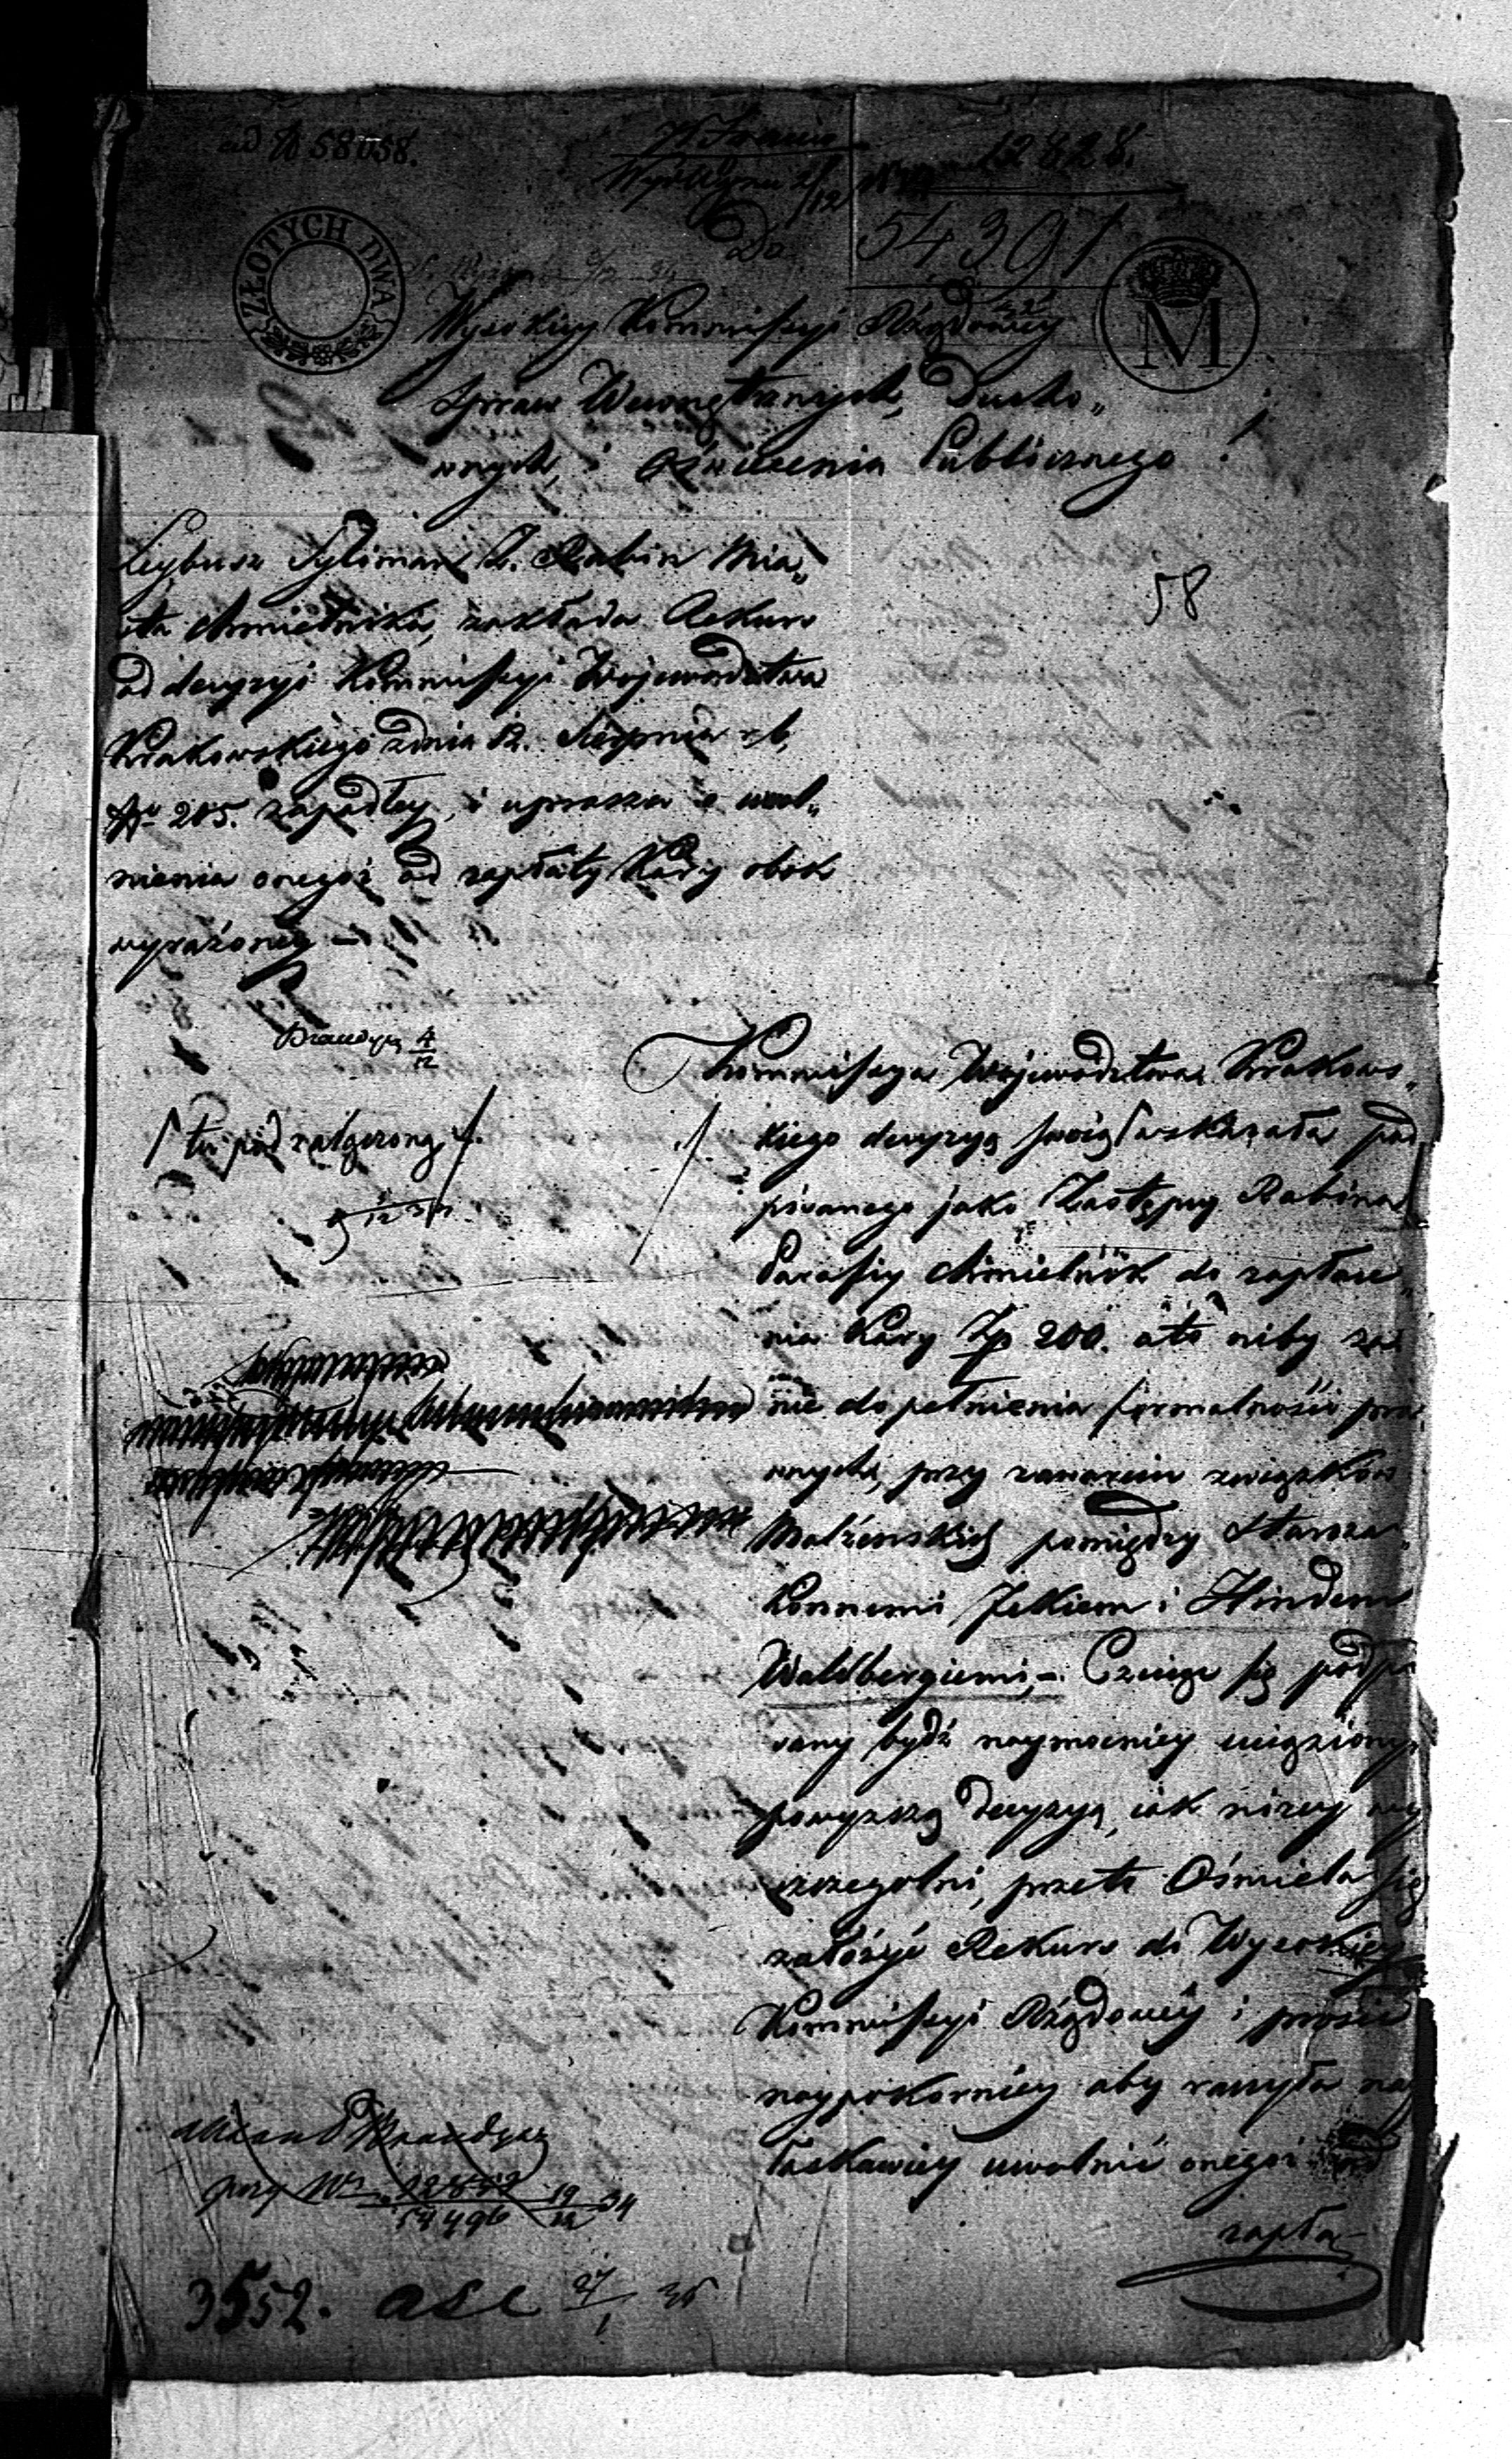 ad N 58058.
12828.
Do
54391
ZŁOTYCH DWA
M
Wysokiey Kommissyi Rządowey
Spraw Wewnętrznych, Ducho„
wnych, i Oświecenia Publicznego !
Leybusz Sylman Z. Rabin Mia„
sta Chmielnika, zakłada Rekurs
od decyzyi Kommissyi Województwa
Krakowskiego z dnia 12. Sierpnia r. b.
Nr 205. zapadłey, i uprasza o uwol„
nienia onegoż od zapłaty Kary obok
wyrażoney –
58
4/12
Kommissya Województwa Krakows„
kiego decyzyą swoią wskazała pod
pisanego jako Zastępcy Rabina
Parafiy Chmielnik do zapłace„
nia Kary Zp 200. a to niby za
nie dopełnienia formalności pra„
wnych, przy zawarciu związków
Małżeńskich pomiędzy Staroza„
konnemi Jckiem i Hindem
Waldbergiemi,–. Czuiąc się podpi
sany bydź naymocniey uciążony
powyższą decyzyą, iak niżey wy
szczegolni, przeto Ośmiela się
założyć Rekurs do Wysokiey
Kommissyi Rządowey i prosić
naypokorniey aby raczyła nay
łaskawiey uwolnić onegoż od
zapła–
tu pod
3552. ase 27/1 35